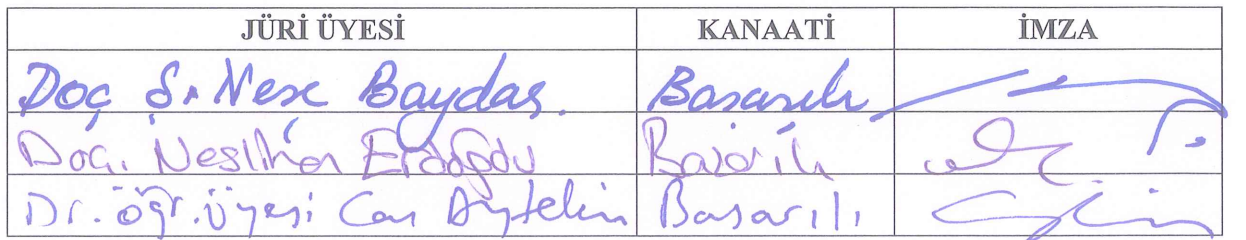 JÜRİ ÜYESİ KANAATİ İMZA
Doç Dr. Neşe Baydaş. Başarılı
Doç. Neslihan Erdoğdu Başarılı
Dr. öğr. üyesi Can Aytekin Başarılı